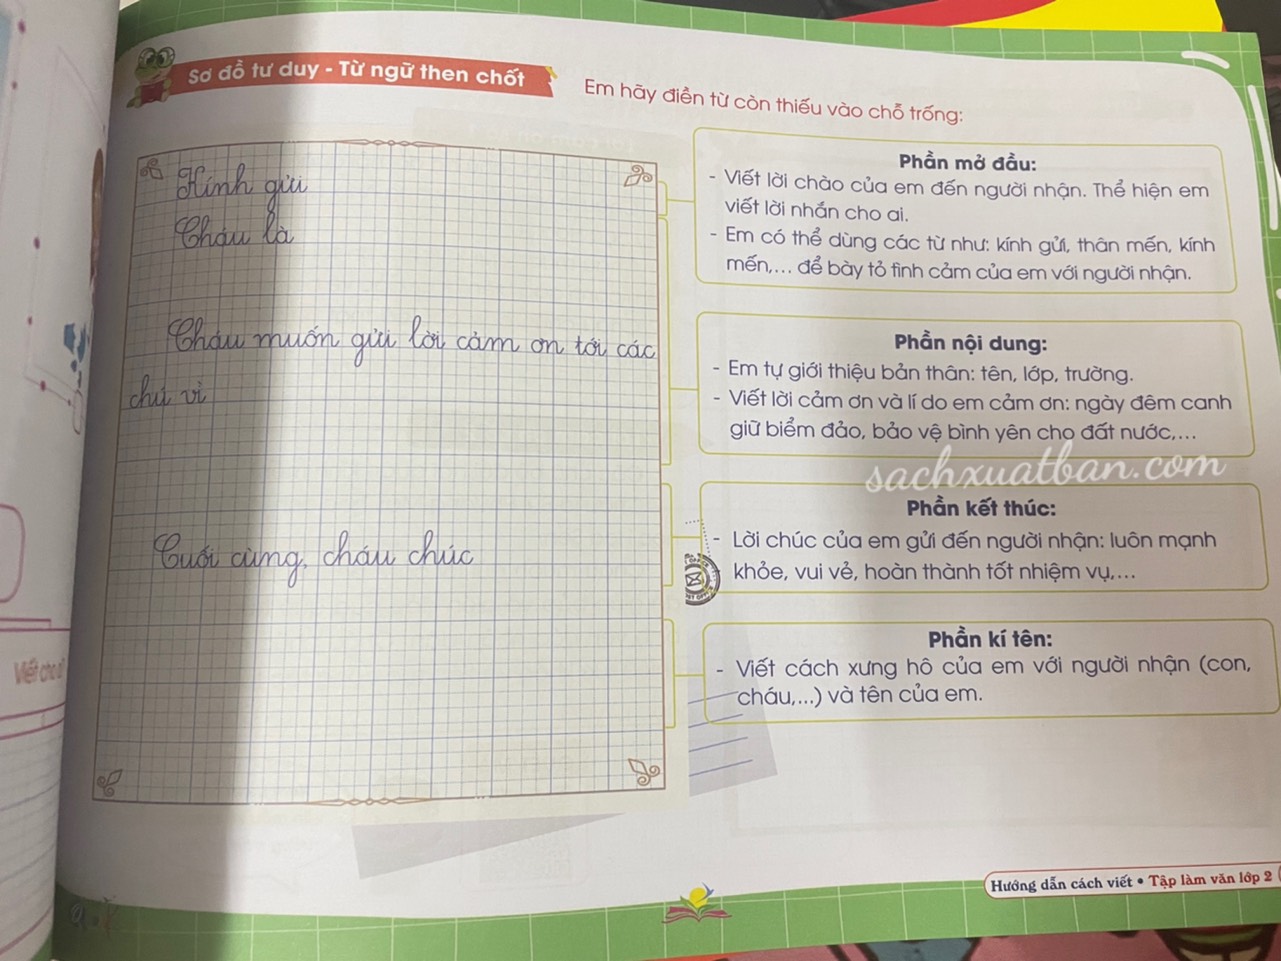 Sơ đồ tư duy - Từ ngữ then chốt
Em hãy điền từ còn thiếu vào chỗ trống:
Kính gửi
Cháu là
Cháu muốn gửi lời cảm ơn tới các
chú vì
Cuối cùng, cháu chúc
Phần mở đầu:
- Viết lời chào của em đến người nhận. Thể hiện em
viết lời nhắn cho ai.
- Em có thể dùng các từ như: kính gửi, thân mến, kính
mến,... để bày tỏ tình cảm của em với người nhận.
Phần nội dung:
- Em tự giới thiệu bản thân: tên, lớp, trường.
- Viết lời cảm ơn và lí do em cảm ơn: ngày đêm canh
giữ biểm đảo, bảo vệ bình yên cho đất nước,...
sachxuatban.com
Phần kết thúc:
- Lời chúc của em gửi đến người nhận: luôn mạnh
khỏe, vui vẻ, hoàn thành tốt nhiệm vụ,...
Phần kí tên:
- Viết cách xưng hô của em với người nhận (con,
cháu,...) và tên của em.
Hướng dẫn cách viết • Tập làm văn lớp 2
Viết cho